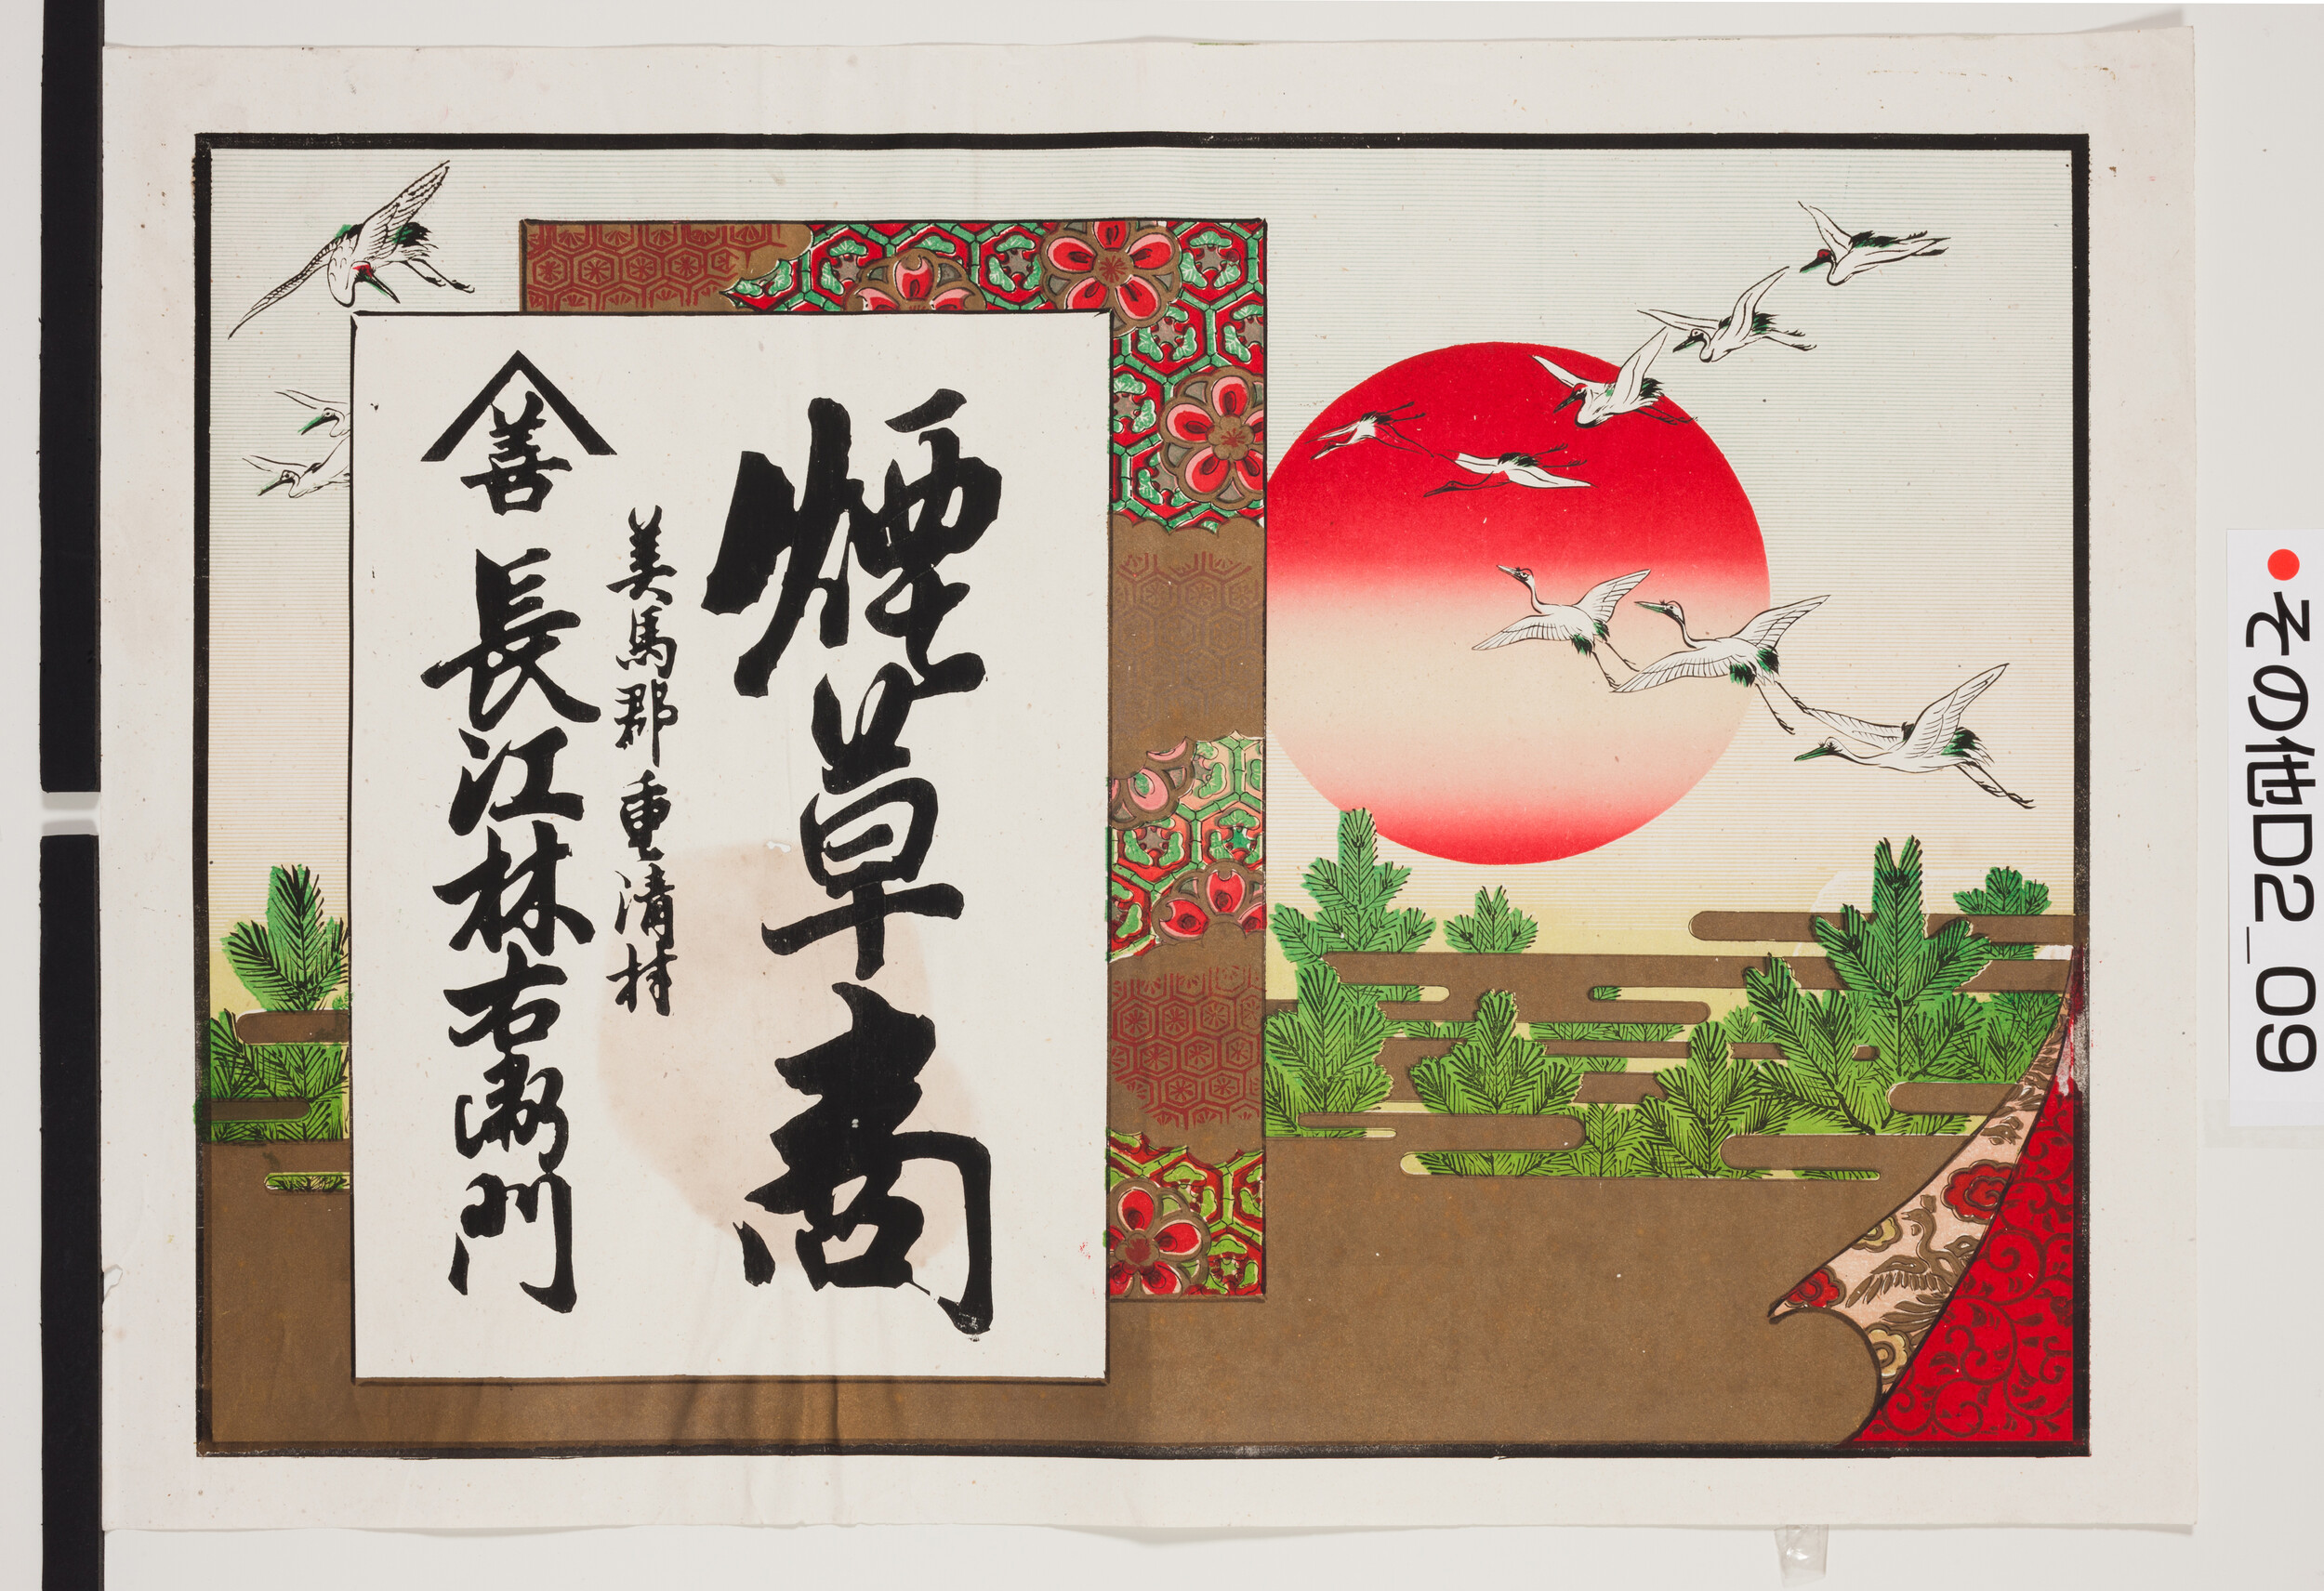 煙草商
美馬郡重清村
善 長江林右衛門
その他D2_09